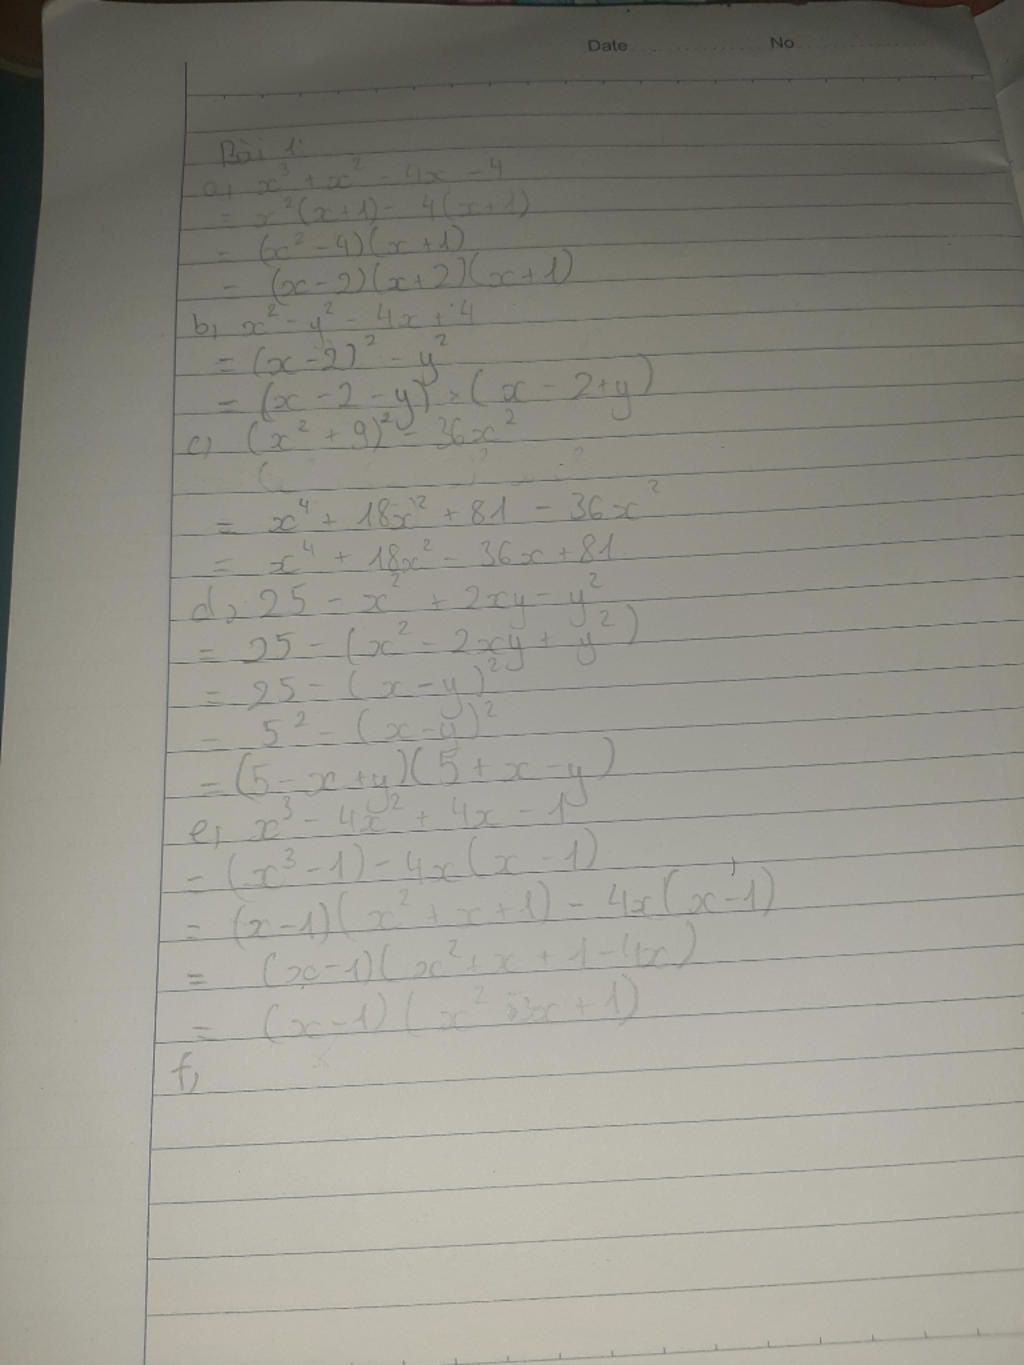 Date No
Bài 1:
a, x³ + x² - 4x - 4
= x²(x+1) - 4(x+1)
= (x² - 4)(x + 1)
= (x - 2)(x + 2)(x + 1)
b, x² - y² - 4x + 4
= (x - 2)² - y²
= (x - 2 - y) × (x - 2 + y)
c, (x² + 9)² - 36x²
(
= x⁴ + 18x² + 81 - 36x²
= x⁴ + 18x² - 36x + 81
d, 25 - x² + 2xy - y²
= 25 - (x² - 2xy + y²)
= 25 - (x - y)²
= 5² - (x - y)²
= (5 - x + y)(5 + x - y)
e, x³ - 4x² + 4x - 1
= (x³ - 1) - 4x(x - 1)
= (x - 1)(x² + x + 1) - 4x(x - 1)
= (x - 1)(x² + x + 1 - 4x)
= (x - 1)(x² 3x + 1)
f,